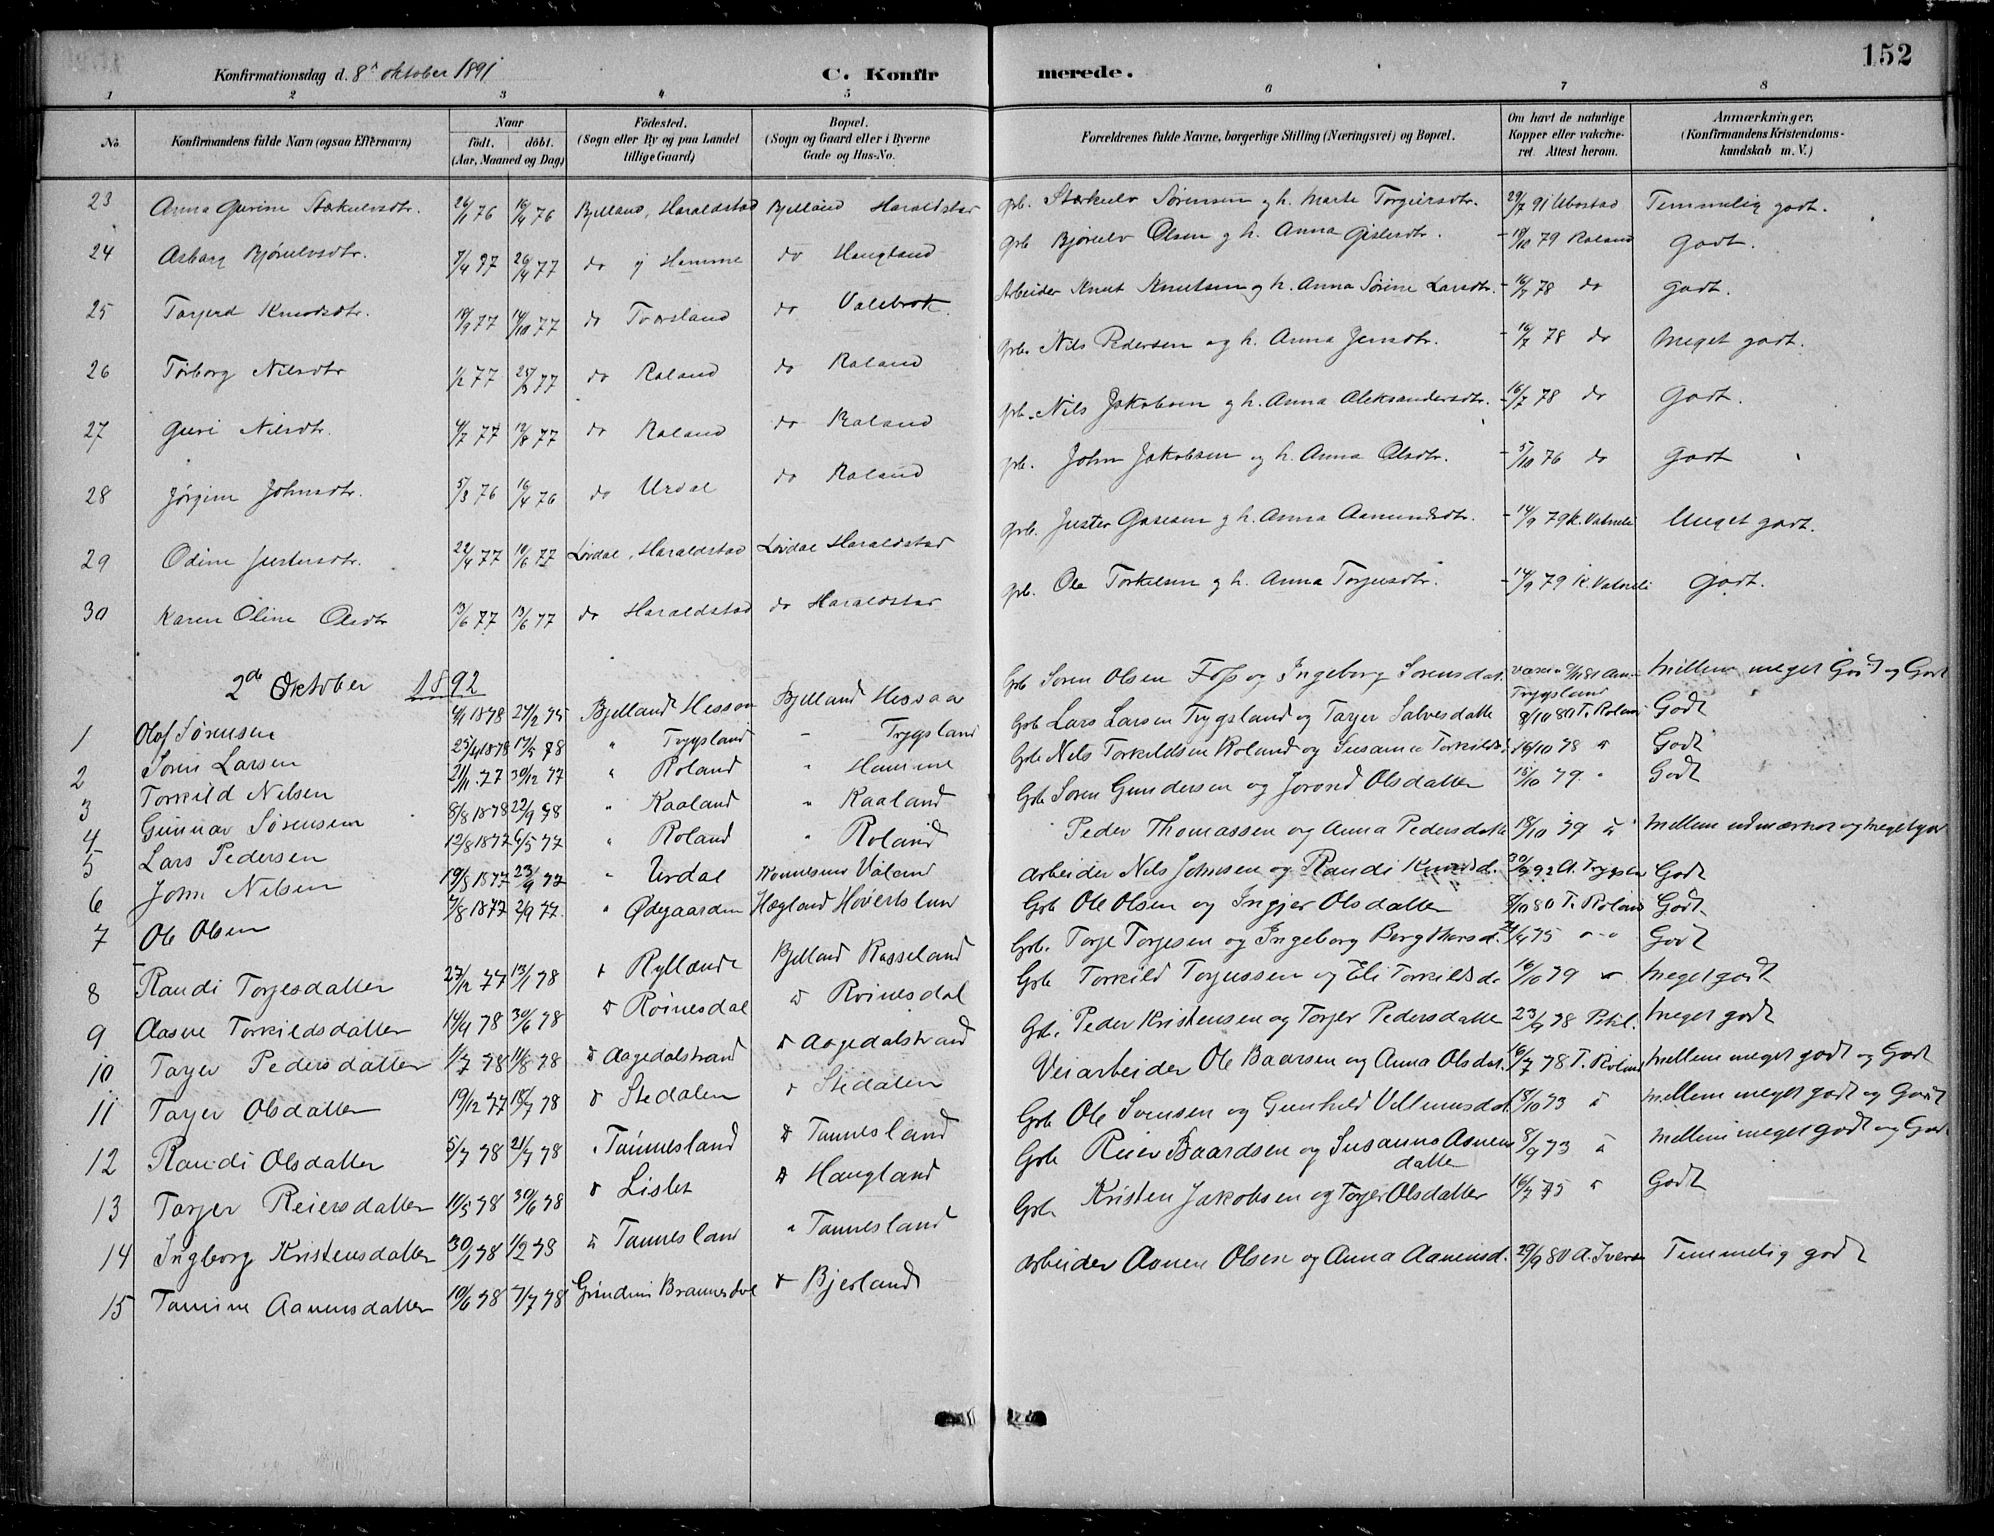 152
Konfirmationsdag d. 8de oktober 1891
C. Konfirmerede.
1 2 3 4 5 6 7 8
No. Konfirmandens fulde Navn (ogsaa Efternavn) Naar født. døbt. (Aar, Maaned og Dag) Fødested. (Sogn eller By og paa Landet tillige Gaard) Bopæl. (Sogn og Gaard eller i Byerne Gade og Hus-No. Forældrenes fulde Navne, borgerlige Stilling (Næringsvei) og Bopæl. Om havt de naturlige Kopper eller vakcineret. Attest herom. Anmærkninger. (Konfirmandens Kristendomskundskab m. V.)
23 Anna Gurine Stærkulvsdtr. 26/1 76 16/4 76 Bjelland, Haraldstad Bjelland Haraldstad grb. Stærkulv Sørensen og h. Marte Torgiersdtr. 29/7 91 Ubostad Temmelig godt.
24 Asborg Bjørulvsdtr. 7/4 77 26/4 77 do y Homme do Haugland grb Bjørulv Olsen og h. Anna Gislesdtr. 18/10 79 Roland Godt.
25 Torjerd Knudsdtr. 18/9 77 14/10 77 do Tværsland do Valebrok Arbeider Knut Knutsen og h. Anna Sørine Larsdtr. 16/7 78 do godt.
26 Torborg Nilsdtr 1/2 77 25/3 77 do Roland do Roland grb. Nils Pedersen og h. Anna Jensdtr. 16/7 78 do Meget godt.
27 Guri Nilsdtr. 4/7 77 12/8 77 do Roland do Roland grb. Nils Jakobsen og h. Anna Aleksandersdtr. 16/7 78 do Godt.
28 Jørgine Johnsdtr. 5/3 76 16/4 76 do Urdal do Roland grb. John Jakobsen og h. Anna Olsdtr. 5/10 76 do Godt
29 Odine Justersdtr. 22/4 77 10/6 77 Løvdal, Haraldstad Løvdal Haraldstad grb. Juster Gasesen og h. Anna Aamundsdtr. 14/9 79 K. Vatneli Meget godt.
30 Karen Oline Olsdtr 13/6 77 13/6 77 do Haraldstad do Haraldstad grb. Ole Torkelsen og h. Anna Torjusdtr. 14/9 79 K. Vatneli Godt.
2de Oktober 1892
1 Olaf Sørensen 4/1 1878 24/2 78 Bjelland Hessaa Bjelland Hessaa Grb Søren Olsen Foss og Ingeborg Sørensdat. Trygsland Mellem meget Godt og Godt
2 Søren Larsen 25/4 1878 17/5 78 " Trygsland " Trygsland Grb Lars Larsen Trygsland og Tarjer Salvesdatte 8/10 80 T. Roland Godt
3 Torkild Nilsen 21/11 77 30/12 77 " Roland " Homme Grb Nils Torkildsen Roland og Susanna Torkilds 16/10 78 " Godt
4 Gunnar Sørensen 8/8 1878 22/9 78 " Kaaland " Kaaland Grb Søren Gundersen og Jorond Olsdatter 18/10 79 " Godt
5 Lars Pedersen 12/8 1877 6/5 77 " Roland " Roland Peder Thomassen og Anna Pedersdatte 18/10 79 " Mellem udmærket og meget godt
6 John Nilsen 19/3 1877 23/9 77 " Urdal Konnesmo Valand Arbeider Nils Johnsen og Randi Knudsd. 30/9 92 A. Trygsl Godt
7 Ole Olsen 7/8 1877 2/9 77. " Ødegaarden Hægland Høvertslun Grb Ole Olsen og Ingjer Olsdatter 8/10 80 T. Roland Godt
8 Randi Torjesdatter 27/12 77 13/1 78 " Ryllande Bjelland Rosseland Grb. Torje Torjesen og Ingeborg Bergthorsd. 21/4 75 " " Godt
9 Aasne Torkildsdatter 14/4 78 30/6 78 " Røinesdal " Røinesdal Grb Torkild Torjussen og Eli Torkildsd. 16/10 79 " Meget godt
10 Tarjer Pedersdatter 1/7 78 11/8 78 " Aagedalstrand " Aagedalstrand Grb. Peder Kristensen og Torjer Pedersdatte 23/9 78 Meget godt
11 Tarjer Olsdatter 19/12 77 18/7 78 " Stedalen " Stedalen Veiarbeider Ole Baarsen og Anna Olsdat. 16/7 78 T. Roland Mellem meget godt og Godt
12 Randi Olsdatter 5/7 78 21/7 78 " Tønnesland " Tønnesland Grb Ole Svensen og Gunhild Villumsdat. 18/10 73 " Mellem meget godt og Godt
13 Tarjer Reiersdatter 11/5 78 30/6 78 " Lislet " Haugland Grb Reier Baardsen og Susanna Aanensdatter 8/9 73 " Mellem meget godt og Godt
14 Ingborg Kristensdatter 30/1 78 1/2 78 " Tønnesland " Tønnesland Grb Kristen Jakobsen og Torjer Olsdatter 16/7 75 " Godt
15 Tomine Aanensdatter 10/6 78 7/7 78 Grindem Brannesdal " Bjerland Arbeider Aanen Olsen og Anna Aanensd. 29/9 80 A. Iversen Temmelig godt